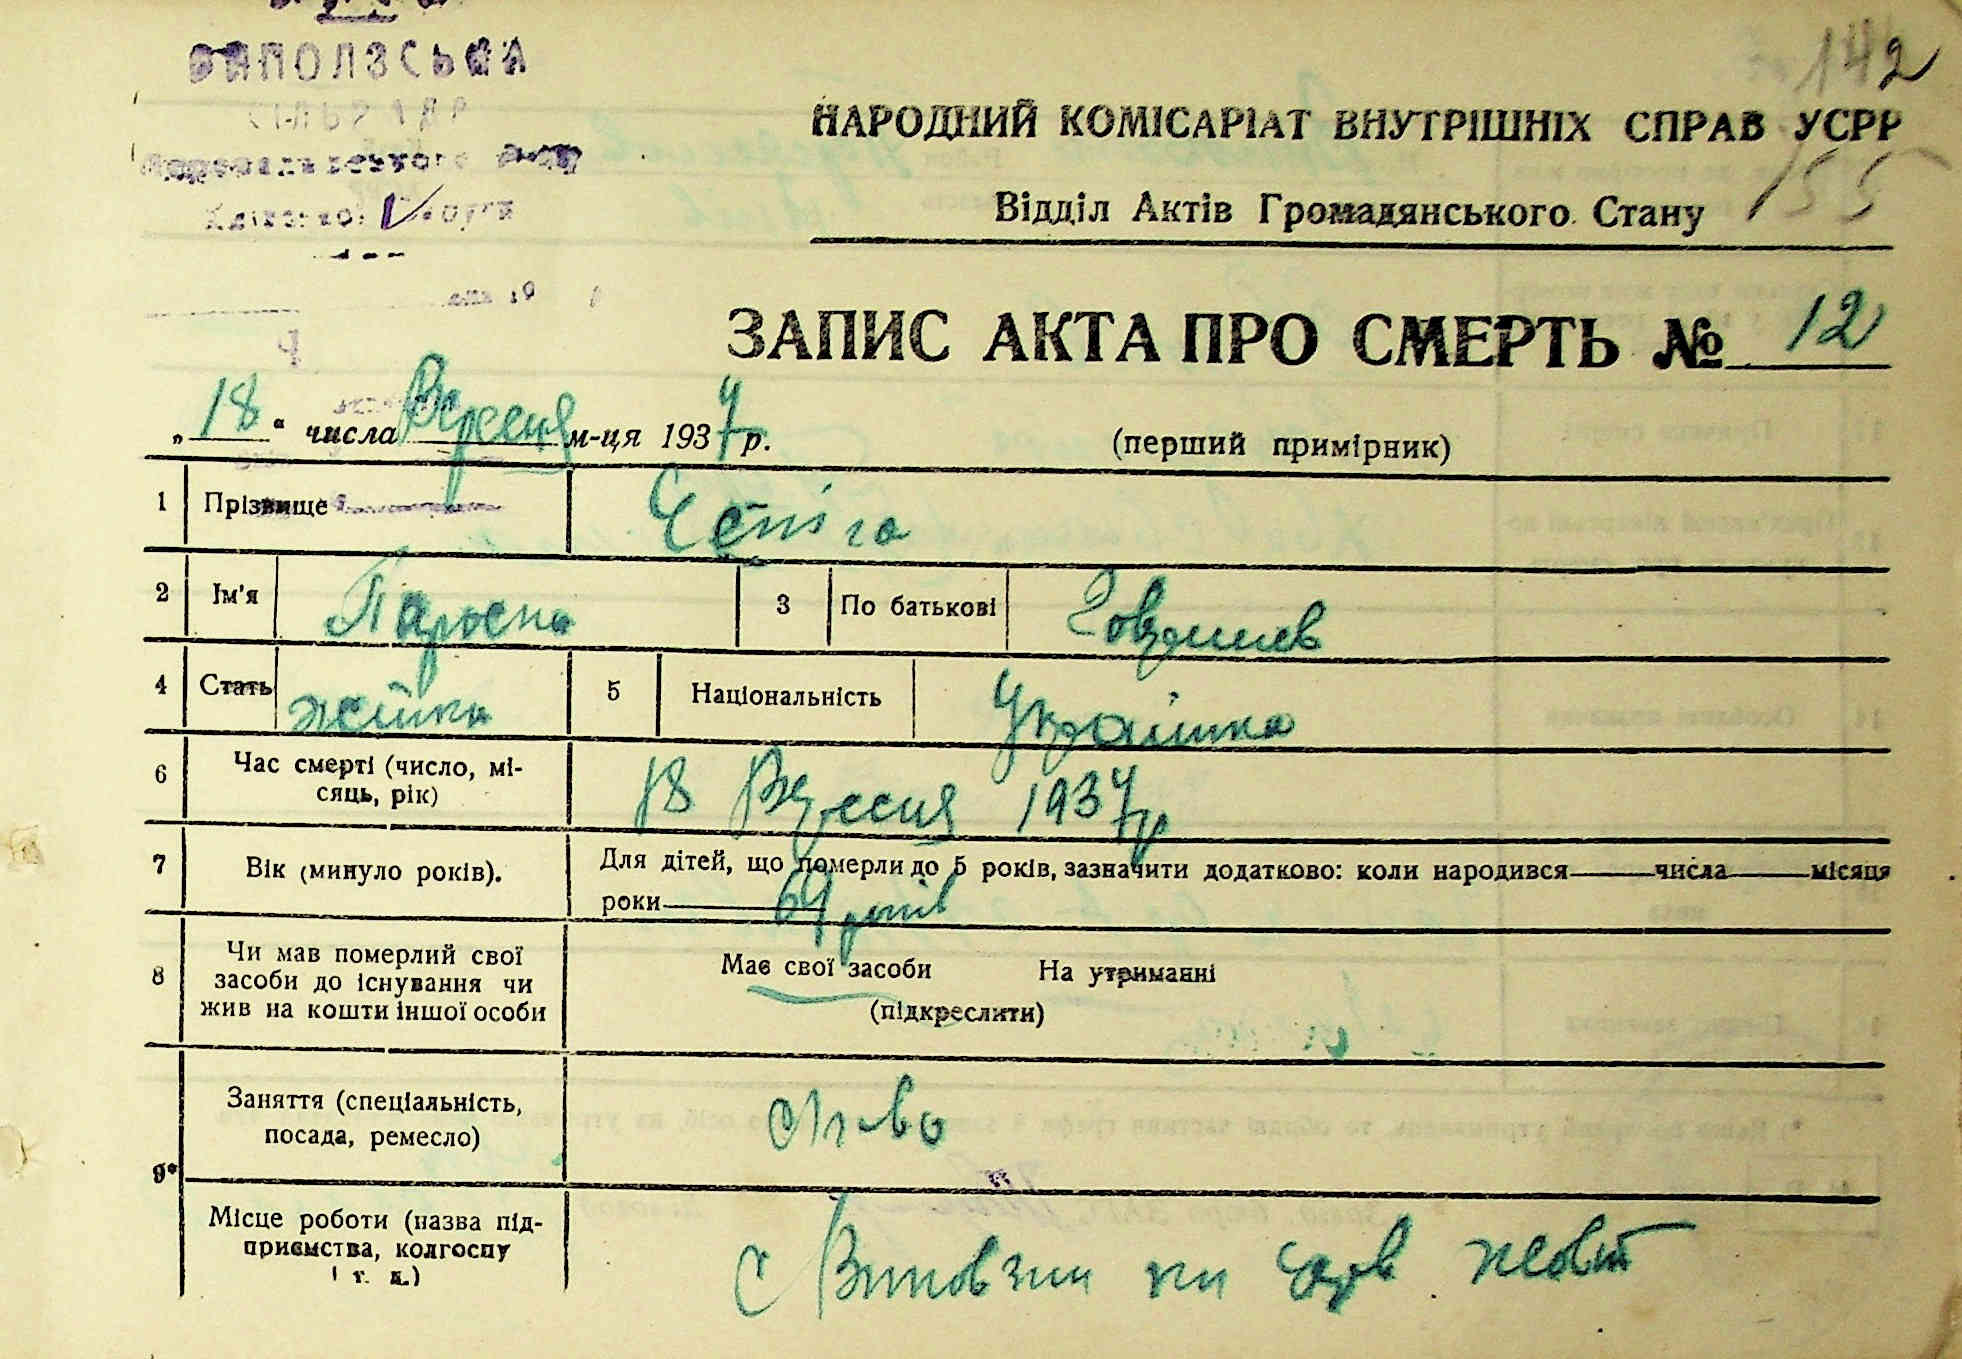 142
НАРОДНИЙ КОМІСАРІАТ ВНУТРІШНІХ СПРАВ УСРР
155
Відділ Актів Громадянського Стану
ЗАПИС АКТА ПРО СМЕРТЬ № 12
„18“ числа Вересня м-ця 1937 р.
(перший примірник)
1 Прізвище Чепіга
2 Ім'я 3 По батькові
4 Стать жінка 5 Національність Українка
6 Час смерті (число, мі-
сяць, рік) 18 Вересня 1937 р
7 Вік (минуло років). Для дітей, що померли до 5 років, зазначити додатково: коли народився числа місяця
роки 69 років
8 Чи мав померлий свої
засоби до існування чи
жив на кошти іншої особи
Має свої засоби На утриманні
(підкреслити)
Заняття (спеціальність,
посада, ремесло)
9*
Місце роботи (назва під-
приємства, колгоспу
і т. д.)